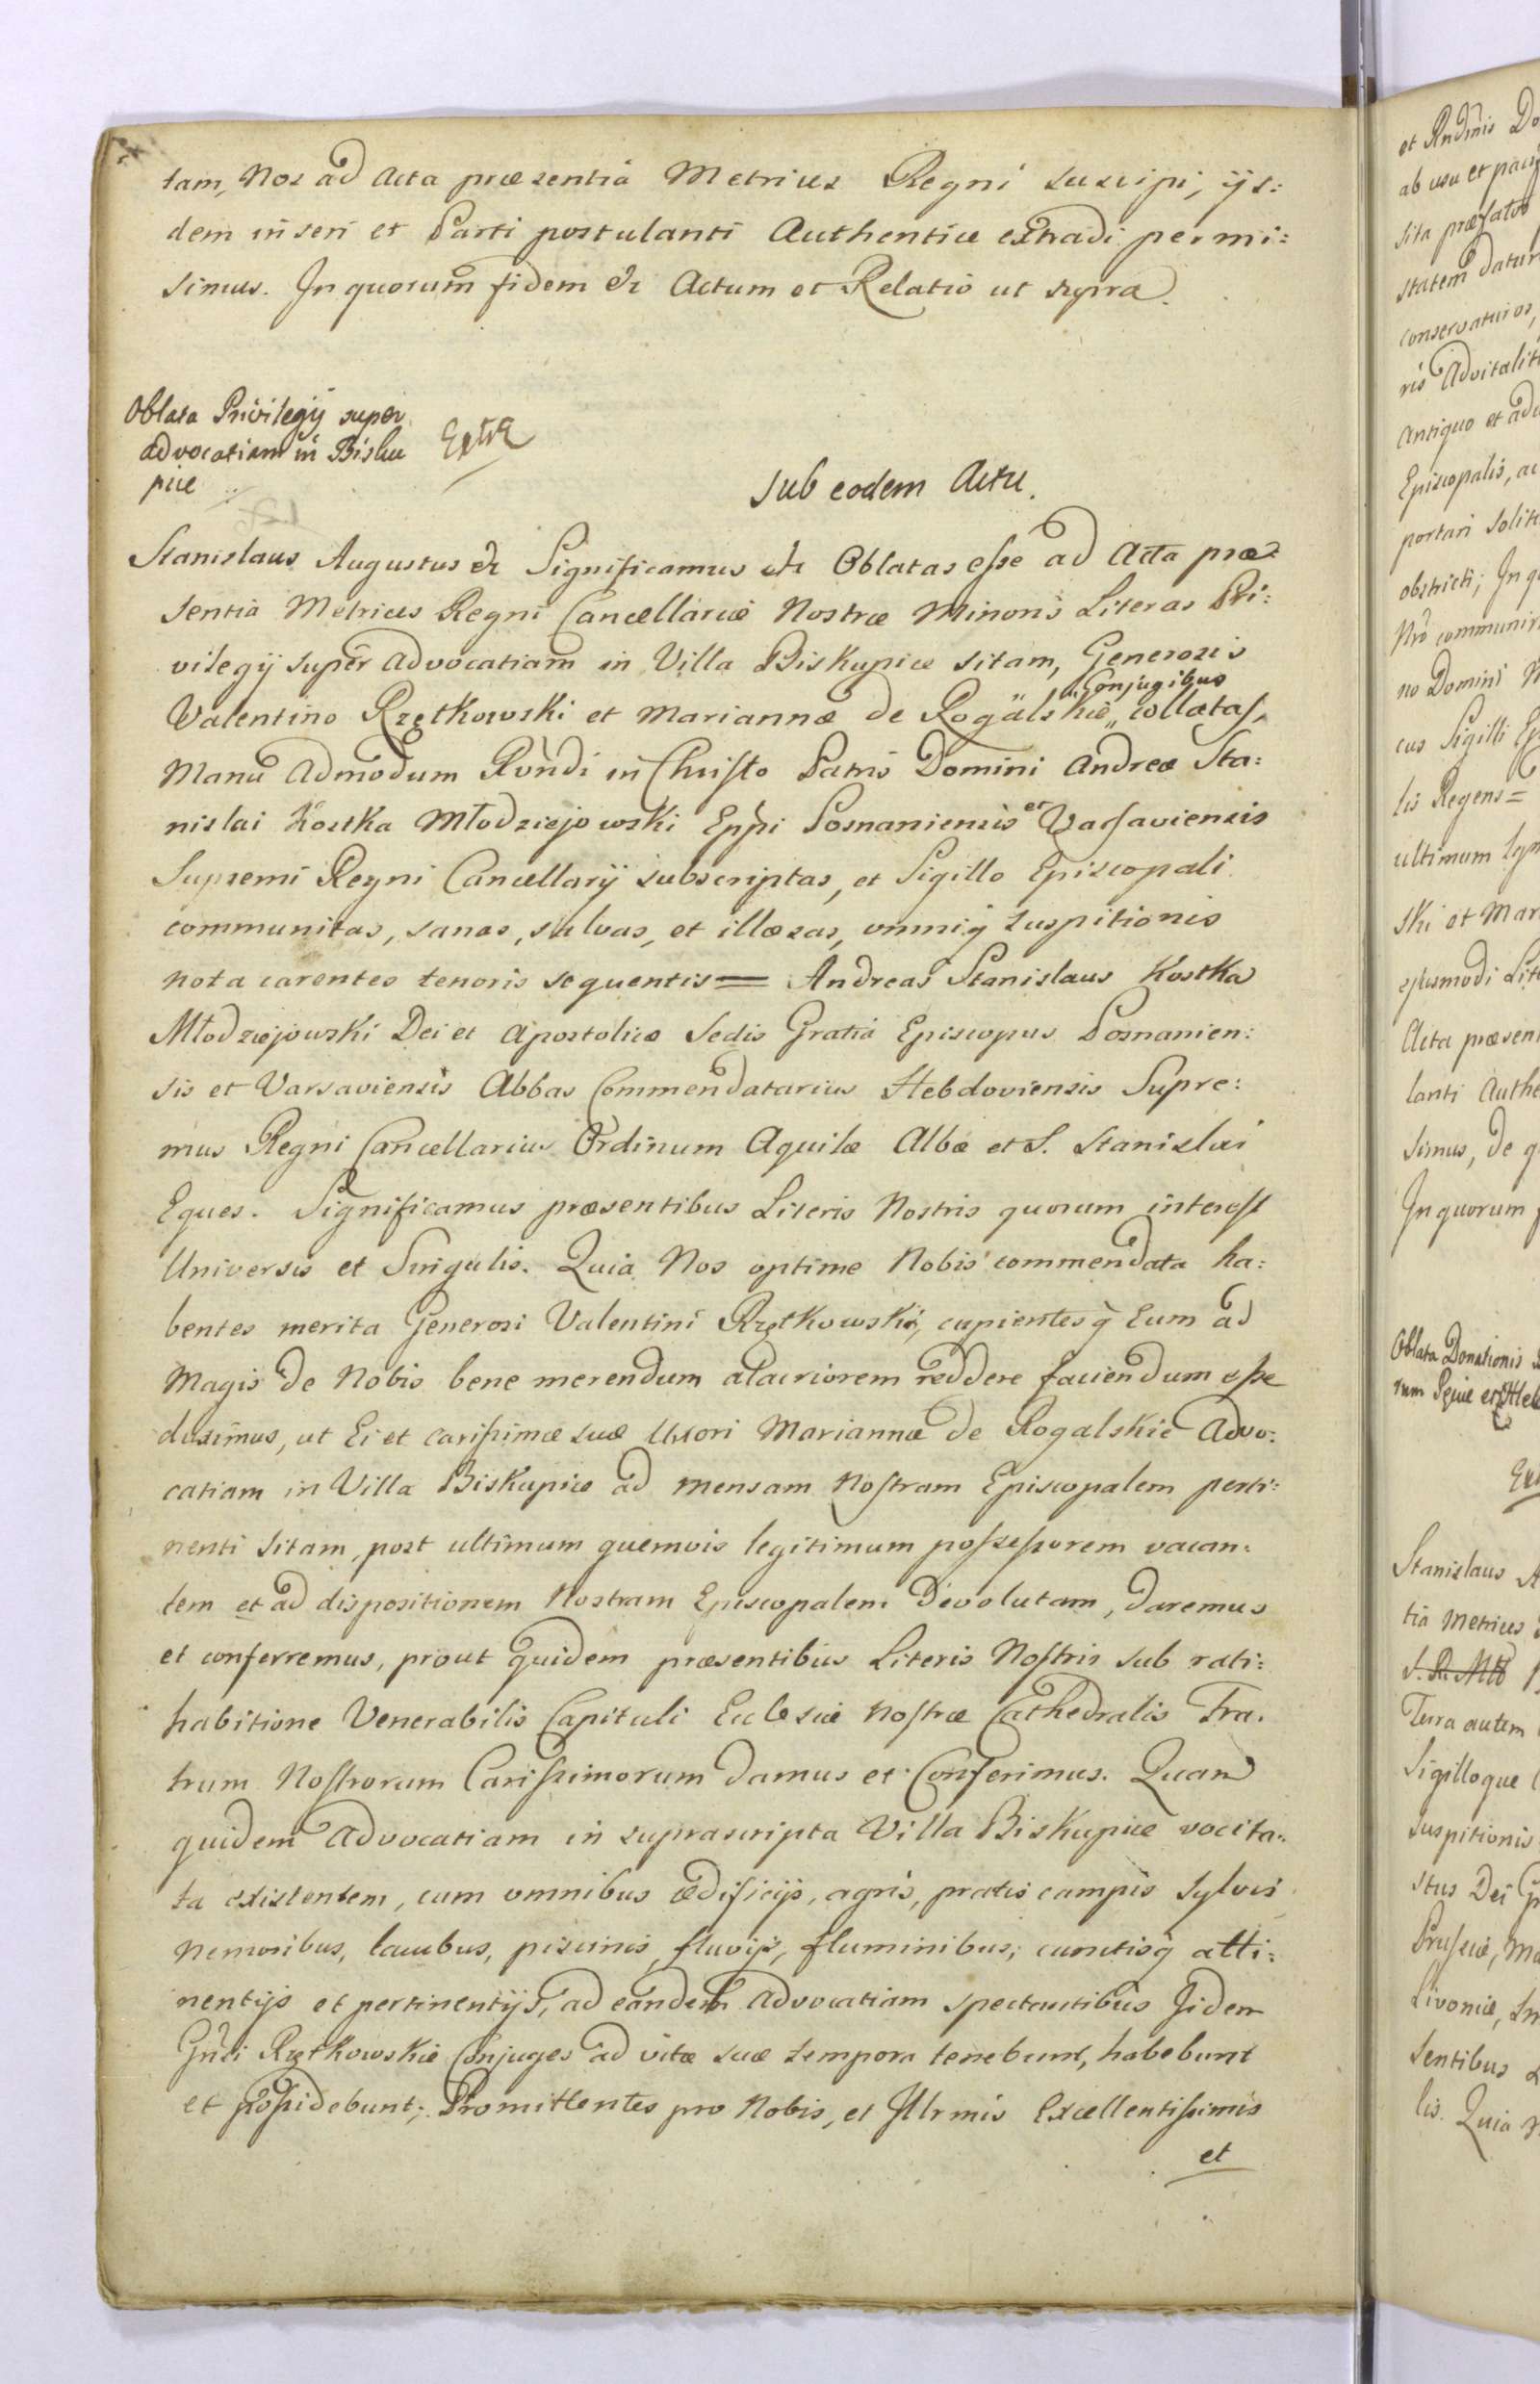 tam, Nos ad Acta præsentia Metrices Regni suscipi, ijs:
dem inseri et Parti postulanti Authentice extradi permi:
simus. In quorum fidem &c Actum et Relatio ut supra.
Oblata Privilegij super
advocatiam in Bisku
pice
Extr
sub eodem Actu.
Stanislaus Augustus &c Significamus &c Oblatas esse ad Acta præ:
sentia Metrices Regni Cancellariæ Nostræ Minoris Literas Pri:
vilegij super Advocatiam in Villa Biskupice sitam, Generosis
Valentino Rzętkowski et Mariannæ de Rogalskie „Conjugibus„ collatas,
Manu Admodum Rvndi in Christo Patris Domini Andreæ Sta:
nislai Kostka Młodziejowski Eppi Posnaniensis et Varsaviensis
Supremi Regni Cancellarij subscriptas, et Sigillo Episcopali
communitas, sanas, salvas, et illæsas, omniq suspitionis
nota carentes tenoris sequentis = Andreas Stanislaus Kostka
Młodziejowski Dei et Apostolicæ Sedis Gratia Episcopus Posnanien:
sis et Varsaviensis Abbas Commendatarius Hebdoviensis Supre:
mus Regni Cancellarius Ordinum Aquilæ Albæ et S. Stanislai
Eques. Significamus præsentibus Literis Nostris quorum interest
Universis et Singulis. Quia Nos optime Nobis commendata ha:
bentes merita Generosi Valentini Rzętkowski, cupientesq Eum ad
Magis de Nobis bene merendum alacriorem reddere faciendum esse
duximus, ut Ei et carissimæ suæ Uxori Mariannæ de Rogalskie Advo:
catiam in Villa Biskupice ad mensam Nostram Episcopalem perti:
nenti sitam, post ultimum quemvis legitimum possessorem vacan:
tem et ad dispositionem Nostram Episcopalem Devolutam, daremus
et conferremus, prout quidem præsentibus Literis Nostris sub rati:
habitione Venerabilis Capituli Ecclesiæ Nostræ Cathedralis Fra:
trum Nostrorum Carissimorum damus et Conferimus. Quam
quidem Advocatiam in suprascripta Villa Biskupice vocita:
ta existentem, cum omnibus ædificijs, agris, pratis campis sylvis
nemoribus, lacubus, piscinis, fluvijs, fluminibus, cunctisq atti:
nentijs et pertinentijs, ad eandem Advocatiam spectantibus Iidem
Gnsi Rzętkowskie Conjuges ad vitæ suæ tempora tenebunt, habebunt
et possidebunt; Promittentes pro Nobis, et Illrmis Excellentissimis
et
et Rndmis Do
ab usu et paci
sita præfatos
statem datur
conservaturos,
ris Advitaliti
Antiquo et adu
Episcopalis, ac
portari solit
obstricti; In q
Nro communir
no Domini
cus Sigilli Ep
lis Regens =
ultimum
ski et Mar
ejusmodi Lit
Acta præsen
lanti Authe
simus, de q
In quorum
Oblata Donationis
Ext
Stanislaus A
tia Metrices
Terra autem
Sigilloque
suspitionis
stus Dei G
Prussiæ, Ma
Livoniæ, Sm
sentibus
lis. Quia